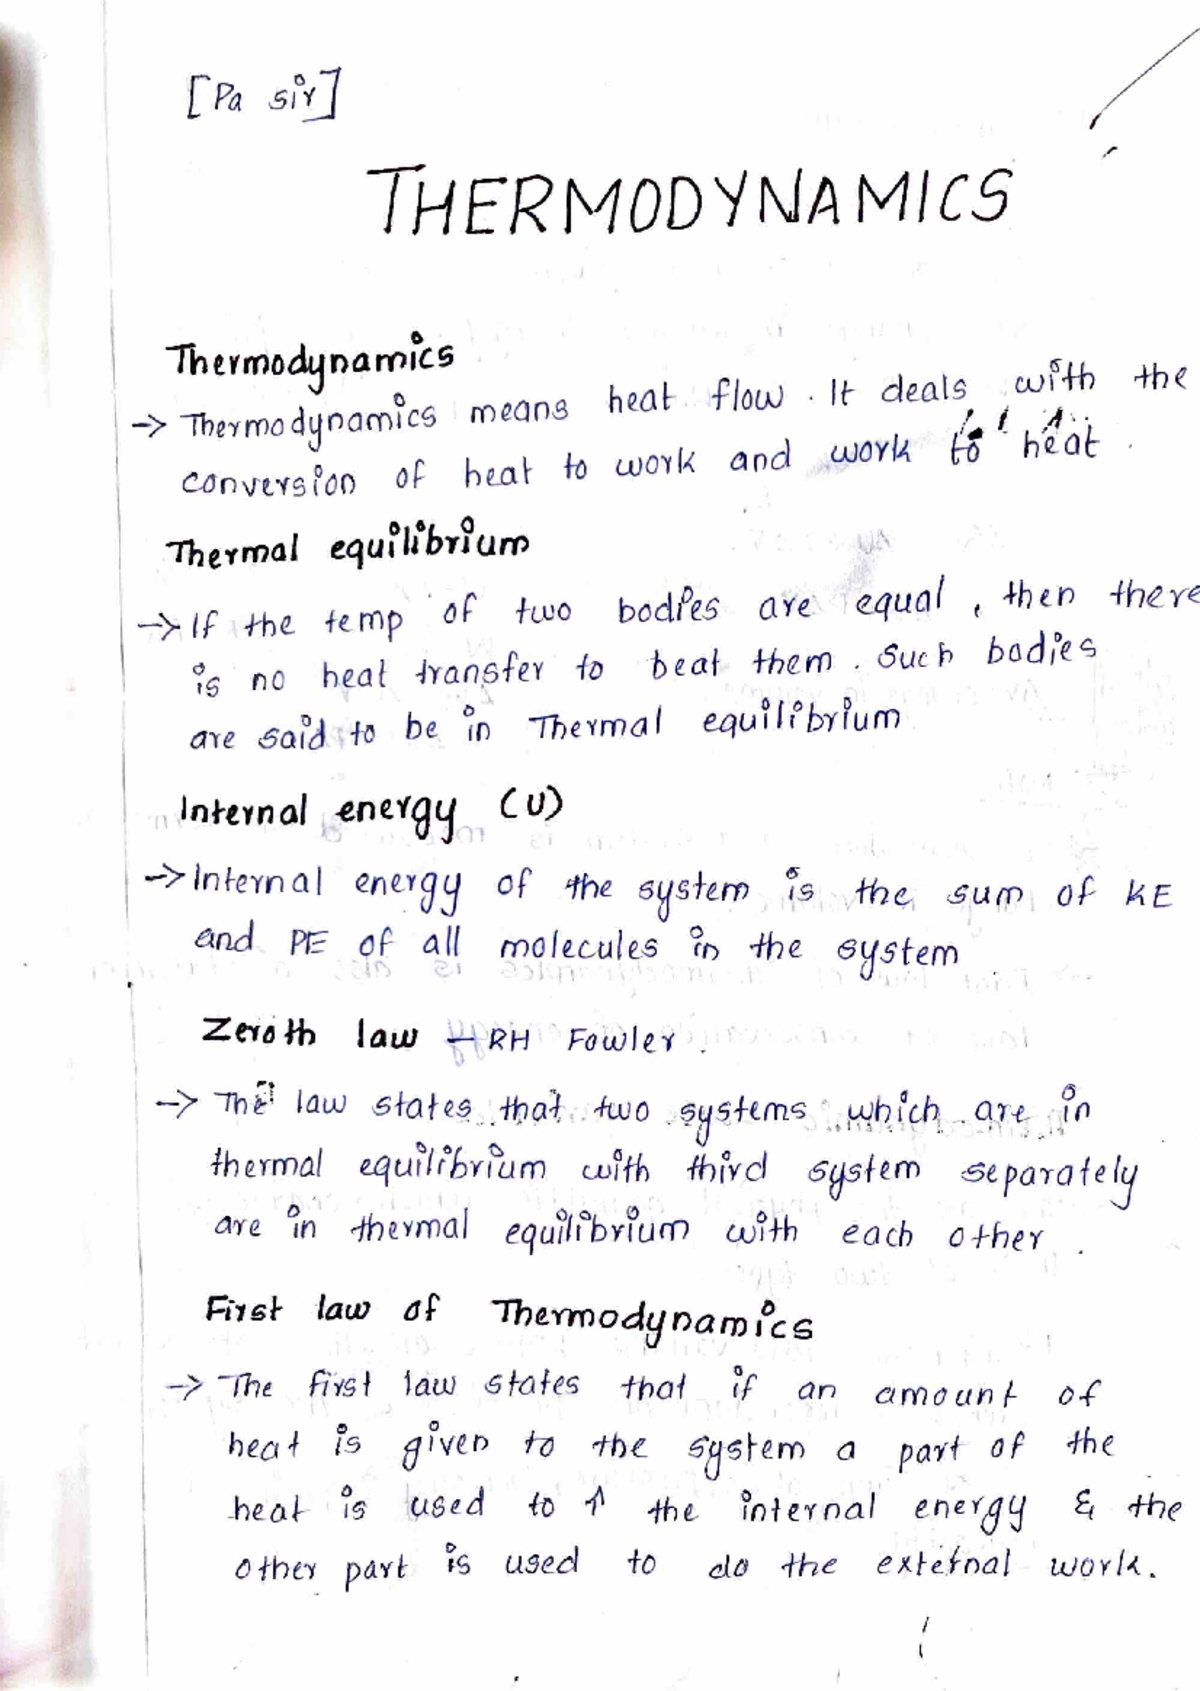 [Pa sir]
THERMODYNAMICS
Thermodynamics
→ Thermodynamics means heat flow. It deals with the
conversion of heat to work and work to heat.
Thermal equilibrium
→ If the temp of two bodies are equal, then there
is no heat transfer to beat them. Such bodies
are said to be in Thermal equilibrium
Internal energy (U)
→ Internal energy of the system is the sum of KE
and PE of all molecules in the system
Zeroth law — RH Fowler.
→ The law states that two systems which are in
thermal equilibrium with third system separately
are in thermal equilibrium with each other.
First law of Thermodynamics
→ The first law states that if an amount of
heat is given to the system a part of the
heat is used to ↑ the internal energy & the
other part is used to do the external work.